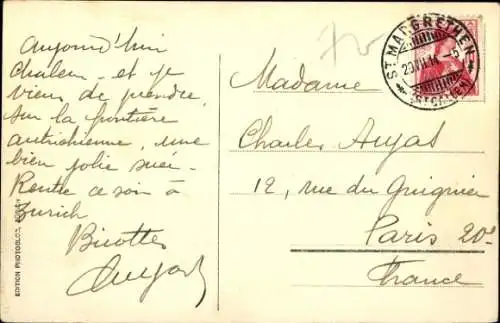 Aujourd'hui
chaleur et je
viens de prendre
sur la frontière
autrichienne, une
bien jolie suée.
Rentre ce soir à
Zurich
Bicottes
Madame
Charles Aujas
12, rue du Guignier
Paris 20e
France
ST. MARGRETHEN
20.VII.14.-5
(ST. GALLEN)
EDITION PHOTOGLOB, ZÜRICH